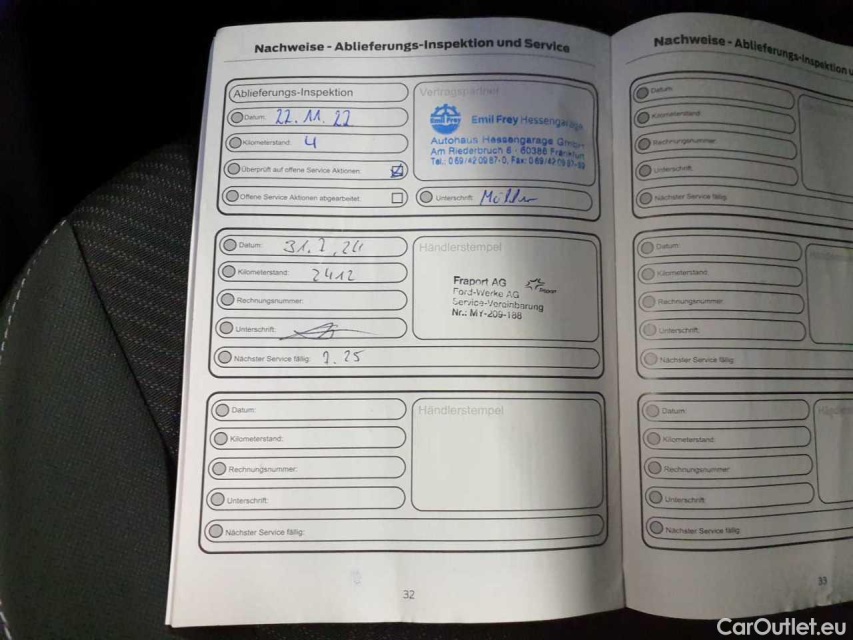 Nachweise - Ablieferungs-Inspektion und Service
Ablieferungs-Inspektion
Datum: 22.11.22
Kilometerstand: 4
Überprüft auf offene Service Aktionen:
Offene Service Aktionen abgearbeitet:
Vertragspartner
Emil Frey
Emil Frey Hessengarage
Autohaus Hessengarage GmbH
Am Riederbruch 6 - 60386 Frankfurt
Tel.: 069/42 09 87-0, Fax: 069/42 09 87-
Unterschrift:
Datum: 31.
Kilometerstand: 2412
Rechnungsnummer:
Unterschrift:
Nächster Service fällig: .25
Händlerstempel
Fraport AG
Ford-Werke AG
Service-Vereinbarung
Nr.: MY-209-188
Fraport
Datum:
Kilometerstand:
Rechnungsnummer:
Unterschrift:
Nächster Service fällig:
Händlerstempel
32
Nachweise - Ablieferungs-Inspektion u
Datum:
Kilometerstand:
Rechnungsnummer:
Unterschrift:
Nächster Service fällig:
Datum:
Kilometerstand:
Rechnungsnummer:
Unterschrift:
Nächster Service fällig:
Datum:
Kilometerstand:
Rechnungsnummer:
Unterschrift:
Nächster Service fällig:
33
CarOutlet.eu